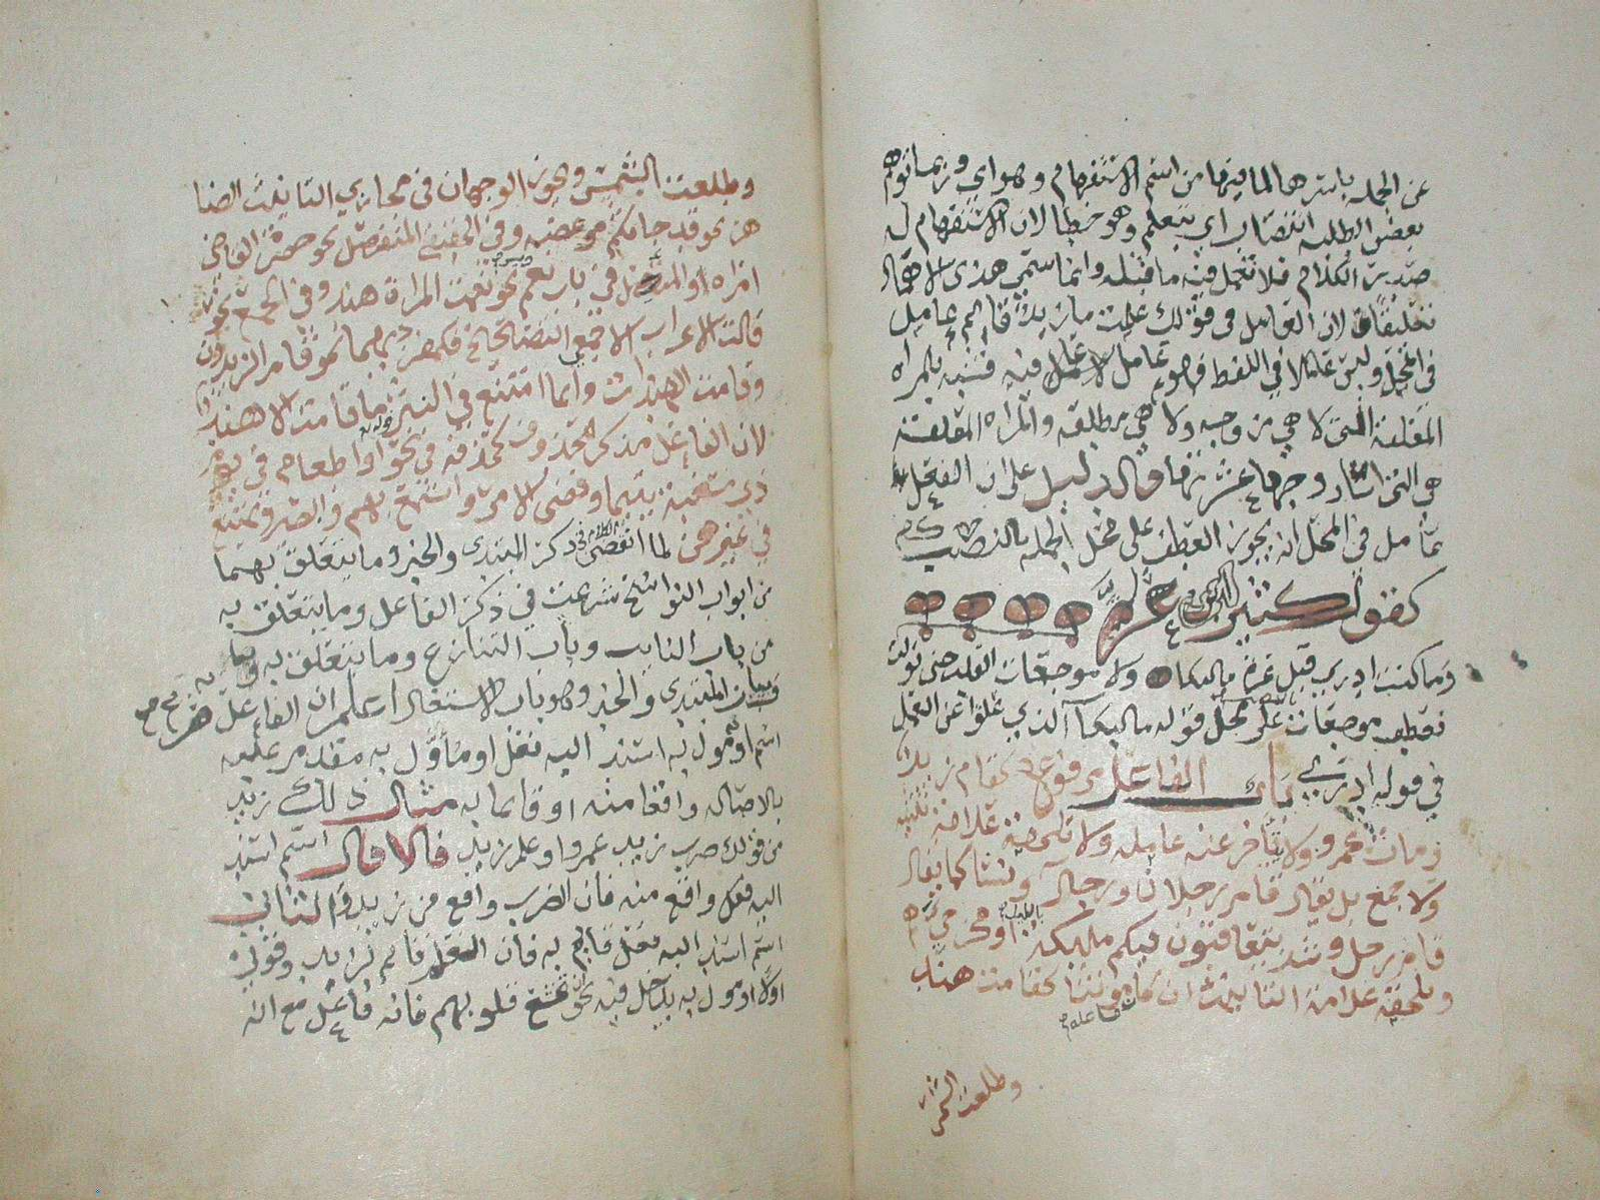 عن الجمله باسرها لما فيها من اسم الاستفهام وهو اي وربما توهم
بعض الطلبه انتصاب اي بتعلم وهو خطا لان الاستفهام له
صدر الكلام فلا تعمل فيه ما قبله وانما سمي هذى الاهمال
تعليقا لان العامل فى قولك علمت ما زيد قايم عامل
فى المحل وليس عاملا في اللفظ فهو عامل لا عامل فيه فشبه بالمراه
المعلقة التى لا هي مزوجه ولا هي مطلقه والمراه المعلقة
هى التى اسا زوجها عشرتها والدليل على ان الفعل
عامل في المحل انه يجوز العطف على محل الجمله بالنصب
كقول كثير عزه
وما كنت ادري قبل عزة ما البكا ولا موجعات القلب حتى تولت
فعطف موجعات على محل قوله ما البكا الذي علق عن العمل
في قوله ادري باب الفاعل مرفوع كقام زيد
ومات عمرو ولا يتاخر عنه عامله ولا تلحقه علامة تثنيه
ولا جمع بل يقال قام رجلان ورجال ونسا كما يقال
قام رجل وشذ يتعاقبون فيكم ملايكه بالليل او مخرجي هم
وتلحقه علامة التانيث ان كان مونثا كقامت هند
وطلعت الشمس
وطلعت الشمس ويجوز الوجهان فى مجازي التانيث الظا
هر نحو قد جاتكم موعظه وفى الحقيقي المنفصل نحو حضرت القاضي
امراه والمتصل في باب نعم وبيس نحو نعمت المراة هند وفى الجمع نحو
قالت الاعراب الا جمعي التصحيح فكمفرديهما نحو قام الزيدون
وقامت الهندات وانما امتنع في النثر ما قامت الا هند
لان الفاعل مذكر محذوف كحذفه في نحو او اطعام في يوم
ذي مسغبة يتيما وقضى الامر واسمع بهم وابصر ويمتنع
في غيرهن لما انقضى الكلام فى ذكر المبتدى والخبر وما يتعلق بهما
من ابواب النواسخ شرعت في ذكر الفاعل وما يتعلق به
من باب النايب وباب التنازع وما يتعلق به
وباب المبتدى والخبر وهو باب الاشتغال اعلم ان الفاعل
اسم او مول به اسند اليه فعل او مأوّل به مقدم عليه
بالاصاله واقعا منه او قايما به مثال ذلك زيد
من قولك ضرب زيد عمروا وعلم زيد فالاول اسم اسند
اليه فعل واقع منه فان الضرب واقع من زيد والثاني
اسم اسند اليه فعل قايم به فان العلم قايم بزيد وقولي
اولا او مول به يدخل فيه نحو ان تخشع قلوبهم فانه فاعل مع انه